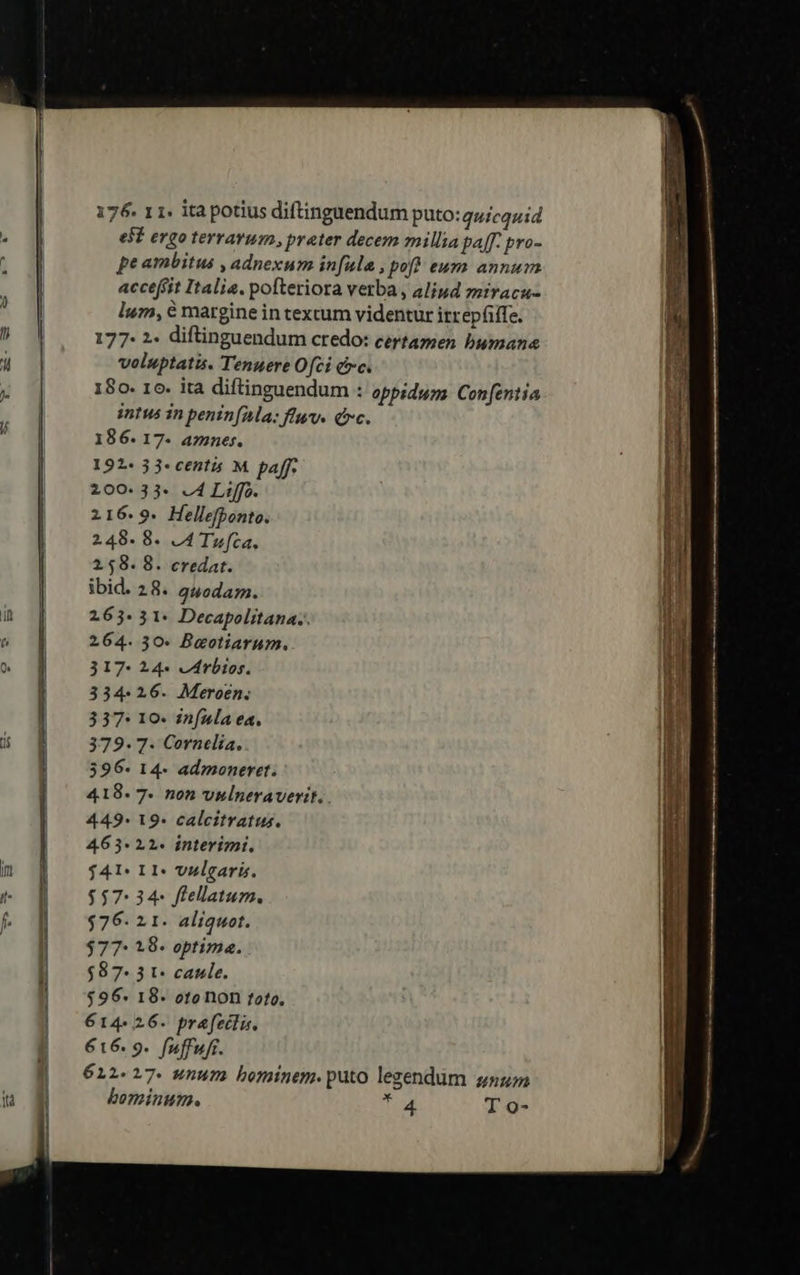 176. 11. ita potius diſtinguendum puto: quicquid
eſt ergo terrarum, præter decem millia paſſ. pro-
pe ambitus, adnexum inſulæ, poſt eum annum
acceſſit Italiæ. poſteriora verba, aliud miracu-
lum, è margine in textum videntur irrepſiſſe.
177. 2. diſtinguendum credo: certamen humanæ
voluptatis. Tenuere Oſci &c.
180. 10. ita diſtinguendum : oppidum Conſentia
intus in peninſula: fluv. &c.
186. 17. amnes.
192. 33. centis M paſſ.
200. 33. A Liſſo.
216. 9. Helleſponto.
248. 8. A Tuſca.
258. 8. credat.
ibid. 28. quodam.
263. 31. Decapolitana.
264. 30. Bæotiarum.
317. 24. Arbios.
334. 26. Meroën.
337. 10. inſula ea.
379. 7. Cornelia.
396. 14. admoneret.
418. 7. non vulneraverit.
449. 19. calcitratus.
463. 22. interimi.
541. 11. vulgaris.
557. 34. ſtellatum.
576. 21. aliquot.
577. 28. optimæ.
587. 31. caule.
596. 18. oto non toto.
614. 26. præfectis.
616. 9. ſuffuſi.
622. 27. unum hominem. puto legendum unum
hominum.
* 4 To-